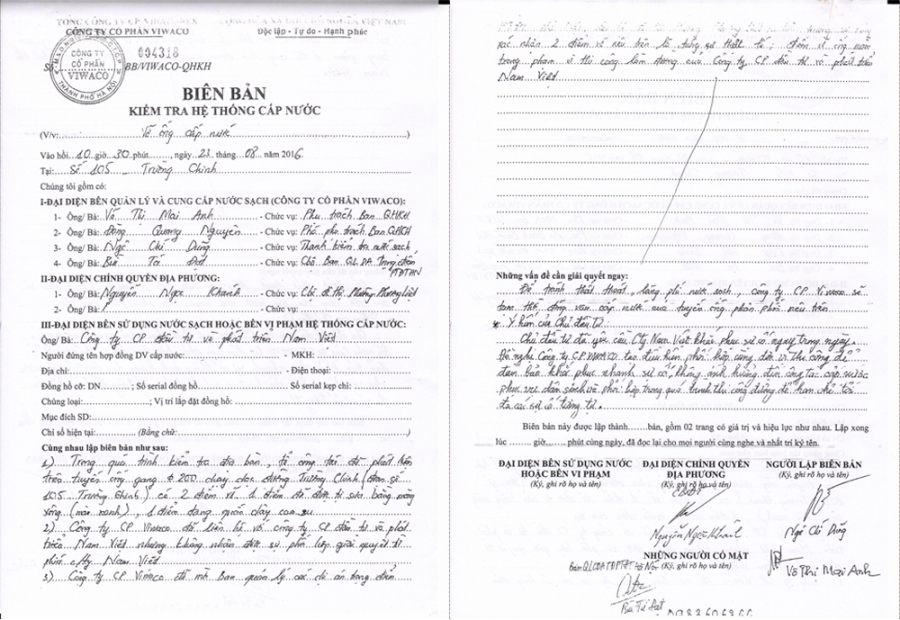 TỔNG CÔNG TY CP VINACONEX
CÔNG TY CỔ PHẦN VIWACO
CỘNG HÒA XÃ HỘI CHỦ NGHĨA VIỆT NAM
Độc lập - Tự do - Hạnh phúc
CÔNG TY
CỔ PHẦN
VIWACO
THÀNH PHỐ HÀ NỘI
Số 004318 BB/VIWACO-QHKH
BIÊN BẢN
KIỂM TRA HỆ THỐNG CẤP NƯỚC
(V/v: Vỡ ống cấp nước)
Vào hồi 10 giờ 30 phút, ngày 23 tháng 08 năm 2016
Tại: Số 105 Trường Chinh
Chúng tôi gồm có:
I-ĐẠI DIỆN BÊN QUẢN LÝ VÀ CUNG CẤP NƯỚC SẠCH (CÔNG TY CỔ PHẦN VIWACO):
1- Ông/ Bà: Võ Thị Mai Anh - Chức vụ: Phụ trách Ban QHKH
2- Ông/ Bà: Đặng Quang Nguyên - Chức vụ: Phó phụ trách Ban QHKH
3- Ông/ Bà: Ngô Chí Dũng - Chức vụ: Thanh kiểm tra nước sạch
4- Ông/ Bà: Bùi Tá Đạt - Chức vụ: Cbộ Ban QLDA Trọng điểm PTĐTHN
II-ĐẠI DIỆN CHÍNH QUYỀN ĐỊA PHƯƠNG:
1- Ông/ Bà: Nguyễn Ngọc Khánh - Chức vụ: Cbộ đô thị Phường Phương Liệt
2- Ông/ Bà: - Chức vụ:
III-ĐẠI DIỆN BÊN SỬ DỤNG NƯỚC SẠCH HOẶC BÊN VI PHẠM HỆ THỐNG CẤP NƯỚC:
Ông/ Bà: Công ty CP đầu tư và phát triển Nam Việt
Người đứng tên hợp đồng DV cấp nước: - MKH:
Địa chỉ: - Điện thoại:
Đồng hồ cỡ: DN ; Số serial đồng hồ Số serial kẹp chì:
Chủng loại: ; Vị trí lắp đặt đồng hồ:
Mục đích SD:
Chỉ số hiện tại: (Bằng chữ: )
Cùng nhau lập biên bản như sau:
1) Trong quá trình kiểm tra địa bàn, tổ công tác đã phát hiện
trên tuyến ống gang ϕ200 chạy dọc đường Trường Chinh (đoạn số
105 Trường Chinh) có 2 điểm vỡ, 1 điểm đã được sửa bằng măng
xông, 1 điểm đang quấn dây cao su
2) Công ty CP Viwaco đã liên hệ với công ty CP đầu tư và phát
triển Nam Việt nhưng không nhận được sự phối hợp giải quyết từ
phía cty Nam Việt
3) Công ty CP Viwaco đã mời Ban quản lý các dự án trọng điểm
xác nhận 2 điểm vỡ nêu trên là đúng sự thật; điểm vỡ ống nước
trong phạm vi thi công làm đường của Công ty CP đầu tư và phát triển
Nam Việt
Những vấn đề cần giải quyết ngay:
Để tránh thất thoát, lãng phí nước sạch, công ty CP Viwaco sẽ
tạm thời đóng van cấp nước của tuyến ống phân phối nêu trên
* Ý kiến của Chủ đầu tư
Chủ đầu tư đã yêu cầu Cty Nam Việt khắc phục sự cố ngay trong ngày.
Đề nghị Công ty CP VIWACO tạo điều kiện phối hợp cùng đơn vị thi công để
đảm bảo khắc phục nhanh sự cố, không ảnh hưởng đến công tác cấp nước
phục vụ dân sinh và phối hợp trong quá trình thi công đường để hạn chế tối
đa các sự cố tương tự.
Biên bản này được lập thành bản, gồm 02 trang có giá trị và hiệu lực như nhau. Lập xong
lúc giờ phút cùng ngày, đã đọc lại cho mọi người cùng nghe và nhất trí ký tên.
ĐẠI DIỆN BÊN SỬ DỤNG NƯỚC
HOẶC BÊN VI PHẠM
(Ký, ghi rõ họ và tên)
ĐẠI DIỆN CHÍNH QUYỀN
ĐỊA PHƯƠNG
(Ký, ghi rõ họ và tên)
Nguyễn Ngọc Khánh
NGƯỜI LẬP BIÊN BẢN
(Ký, ghi rõ họ và tên)
Ngô Chí Dũng
NHỮNG NGƯỜI CÓ MẶT
(Ký, ghi rõ họ và tên)
Ban QLDA TĐPTĐT Hà Nội
Bùi Tá Đạt
Võ Thị Mai Anh